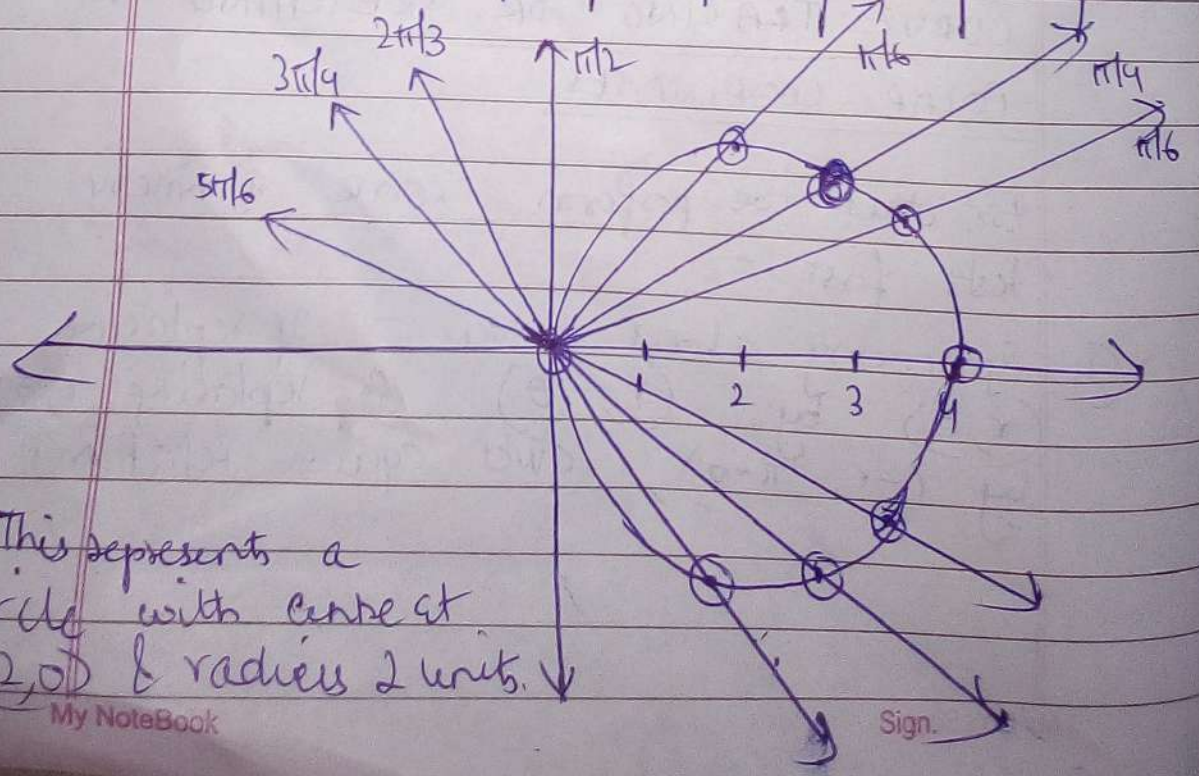 2π/3
π/2
π/6
3π/4
π/4
5π/6
π/6
1 2 3 4
This represents a
cle with centre at
2,0) & radius 2 units.
My NoteBook
Sign.